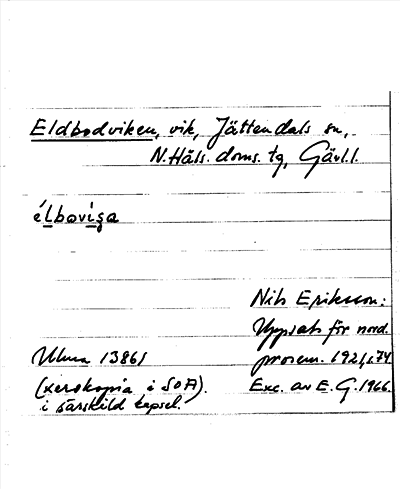 Eldbodviken, vik, Jättendals sn,
N. Häls. doms. tg, Gävl.l.
élbovíga
Nils Eriksson:
Uppsats för nord.
Ulma 13861 prosem. 1921, s. 74
(xerokopia i SOA). Exc. av E. G. 1966.
i särskild kapsel.